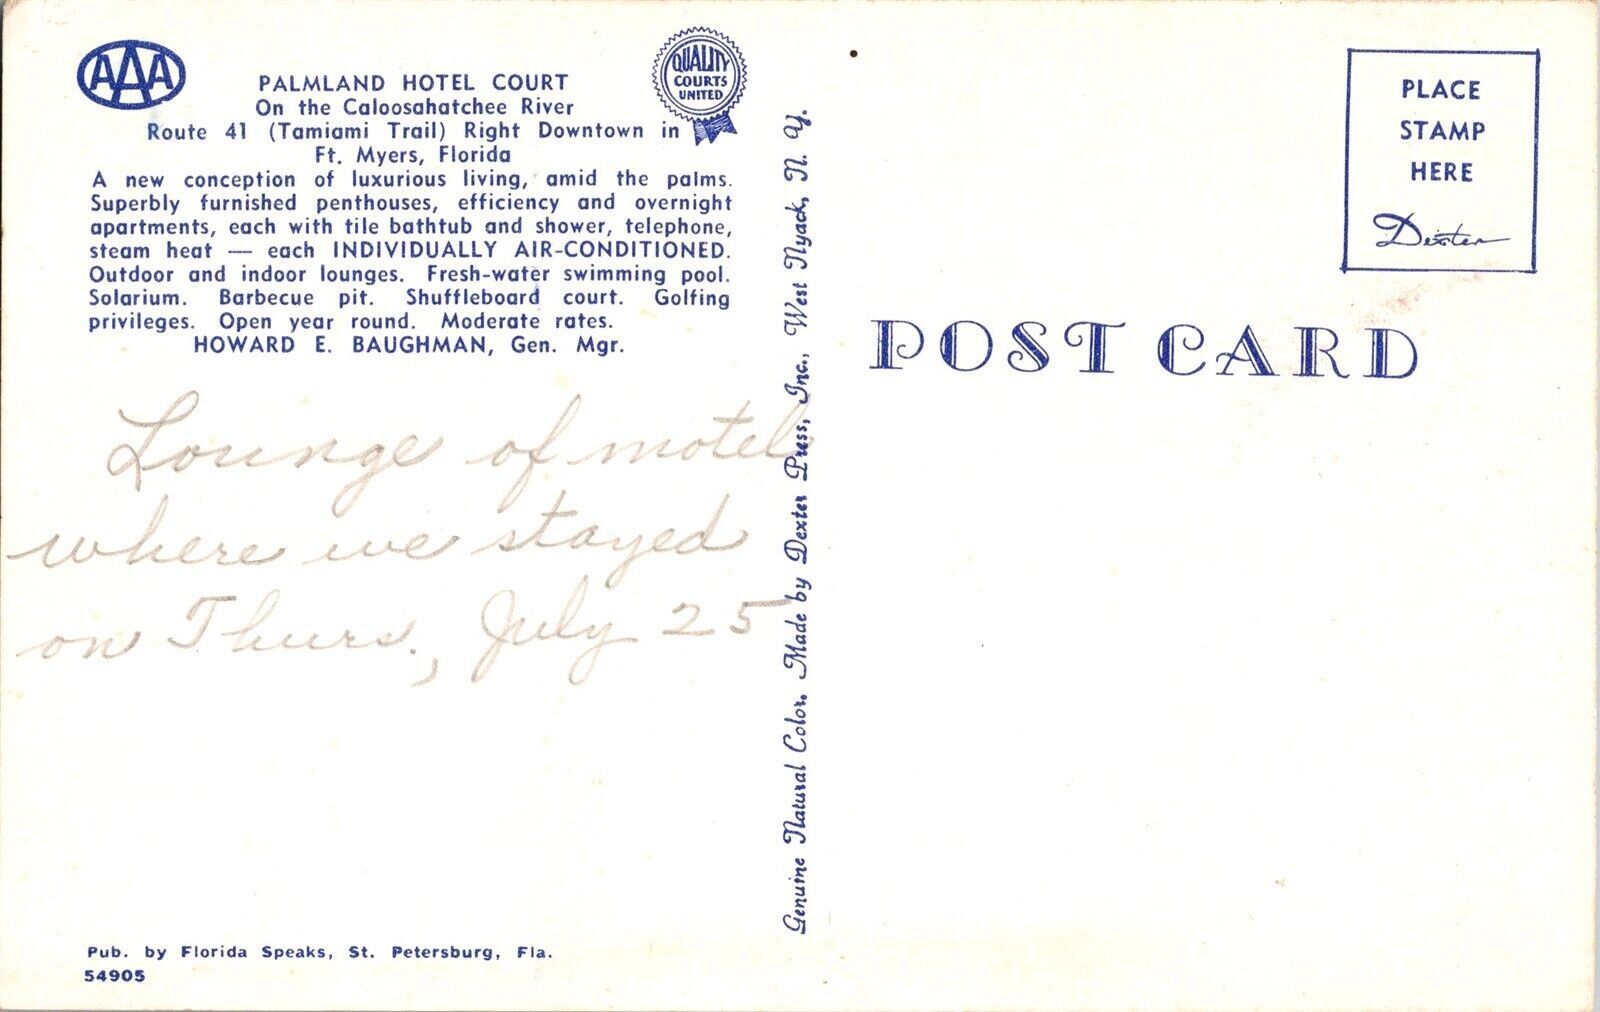 AAA
PALMLAND HOTEL COURT
On the Caloosahatchee River
Route 41 (Tamiami Trail) Right Downtown in
Ft. Myers, Florida
A new conception of luxurious living, amid the palms.
Superbly furnished penthouses, efficiency and overnight
apartments, each with tile bathtub and shower, telephone,
steam heat — each INDIVIDUALLY AIR-CONDITIONED.
Outdoor and indoor lounges. Fresh-water swimming pool.
Solarium. Barbecue pit. Shuffleboard court. Golfing
privileges. Open year round. Moderate rates.
HOWARD E. BAUGHMAN, Gen. Mgr.
QUALITY
COURTS
UNITED
Lounge of motel
where we stayed
on Thurs., July 25
Pub. by Florida Speaks, St. Petersburg, Fla.
54905
Genuine Natural Color. Made by Dexter Press, Inc., West Nyack, N. Y.
PLACE
STAMP
HERE
Dexter
POST CARD